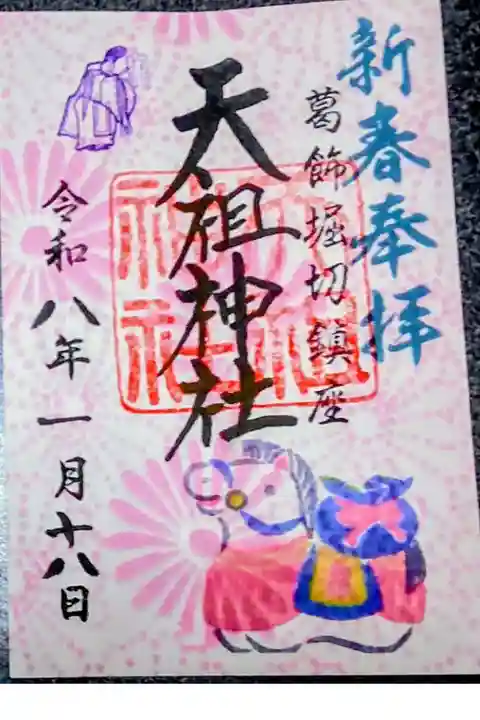 新春奉拝
葛飾堀切鎮座
天祖神社
令和八年一月十八日
天祖神社